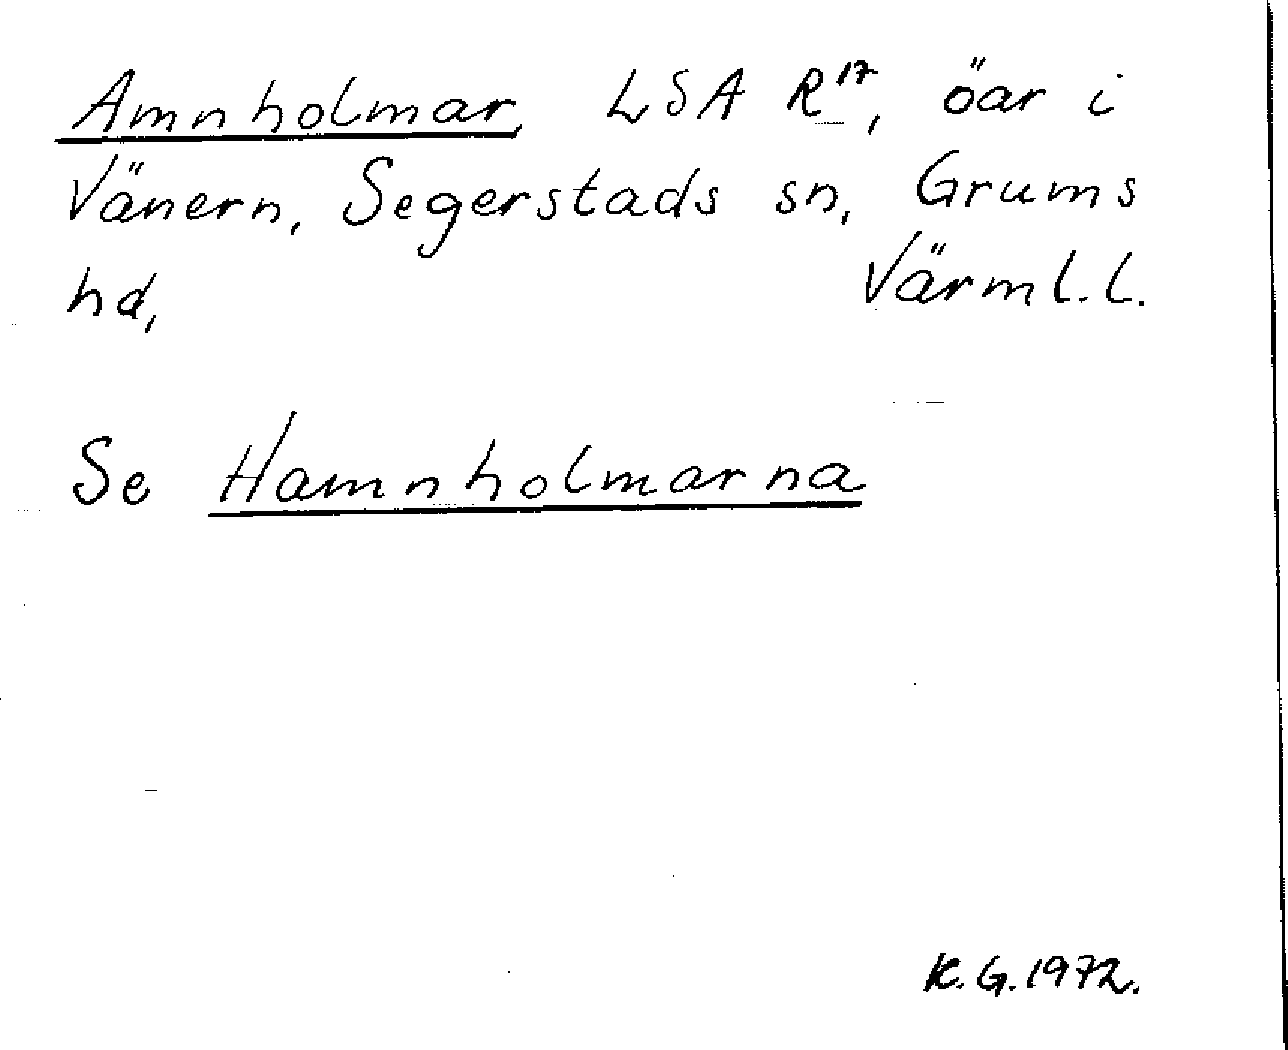 Amnholmar, LSA R¹⁷, öar i
Vänern, Segerstads sn, Grums
hd, Värml.l.
Se Hamnholmarna
K.G.1972.